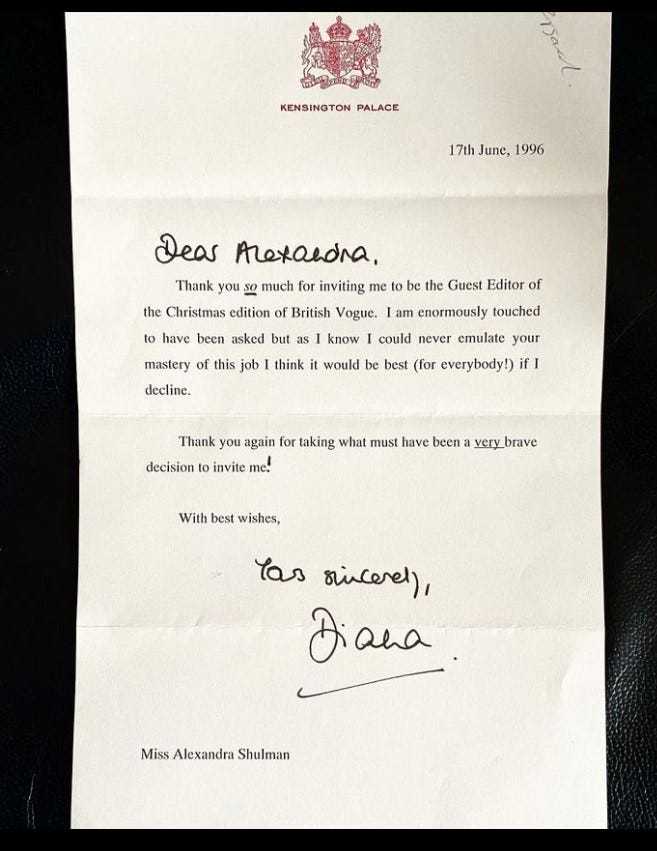 KENSINGTON PALACE
17th June, 1996
Dear Alexandra,
Thank you so much for inviting me to be the Guest Editor of
the Christmas edition of British Vogue. I am enormously touched
to have been asked but as I know I could never emulate your
mastery of this job I think it would be best (for everybody!) if I
decline.
Thank you again for taking what must have been a very brave
decision to invite me!
With best wishes,
Yours sincerely,
Diana.
Miss Alexandra Shulman